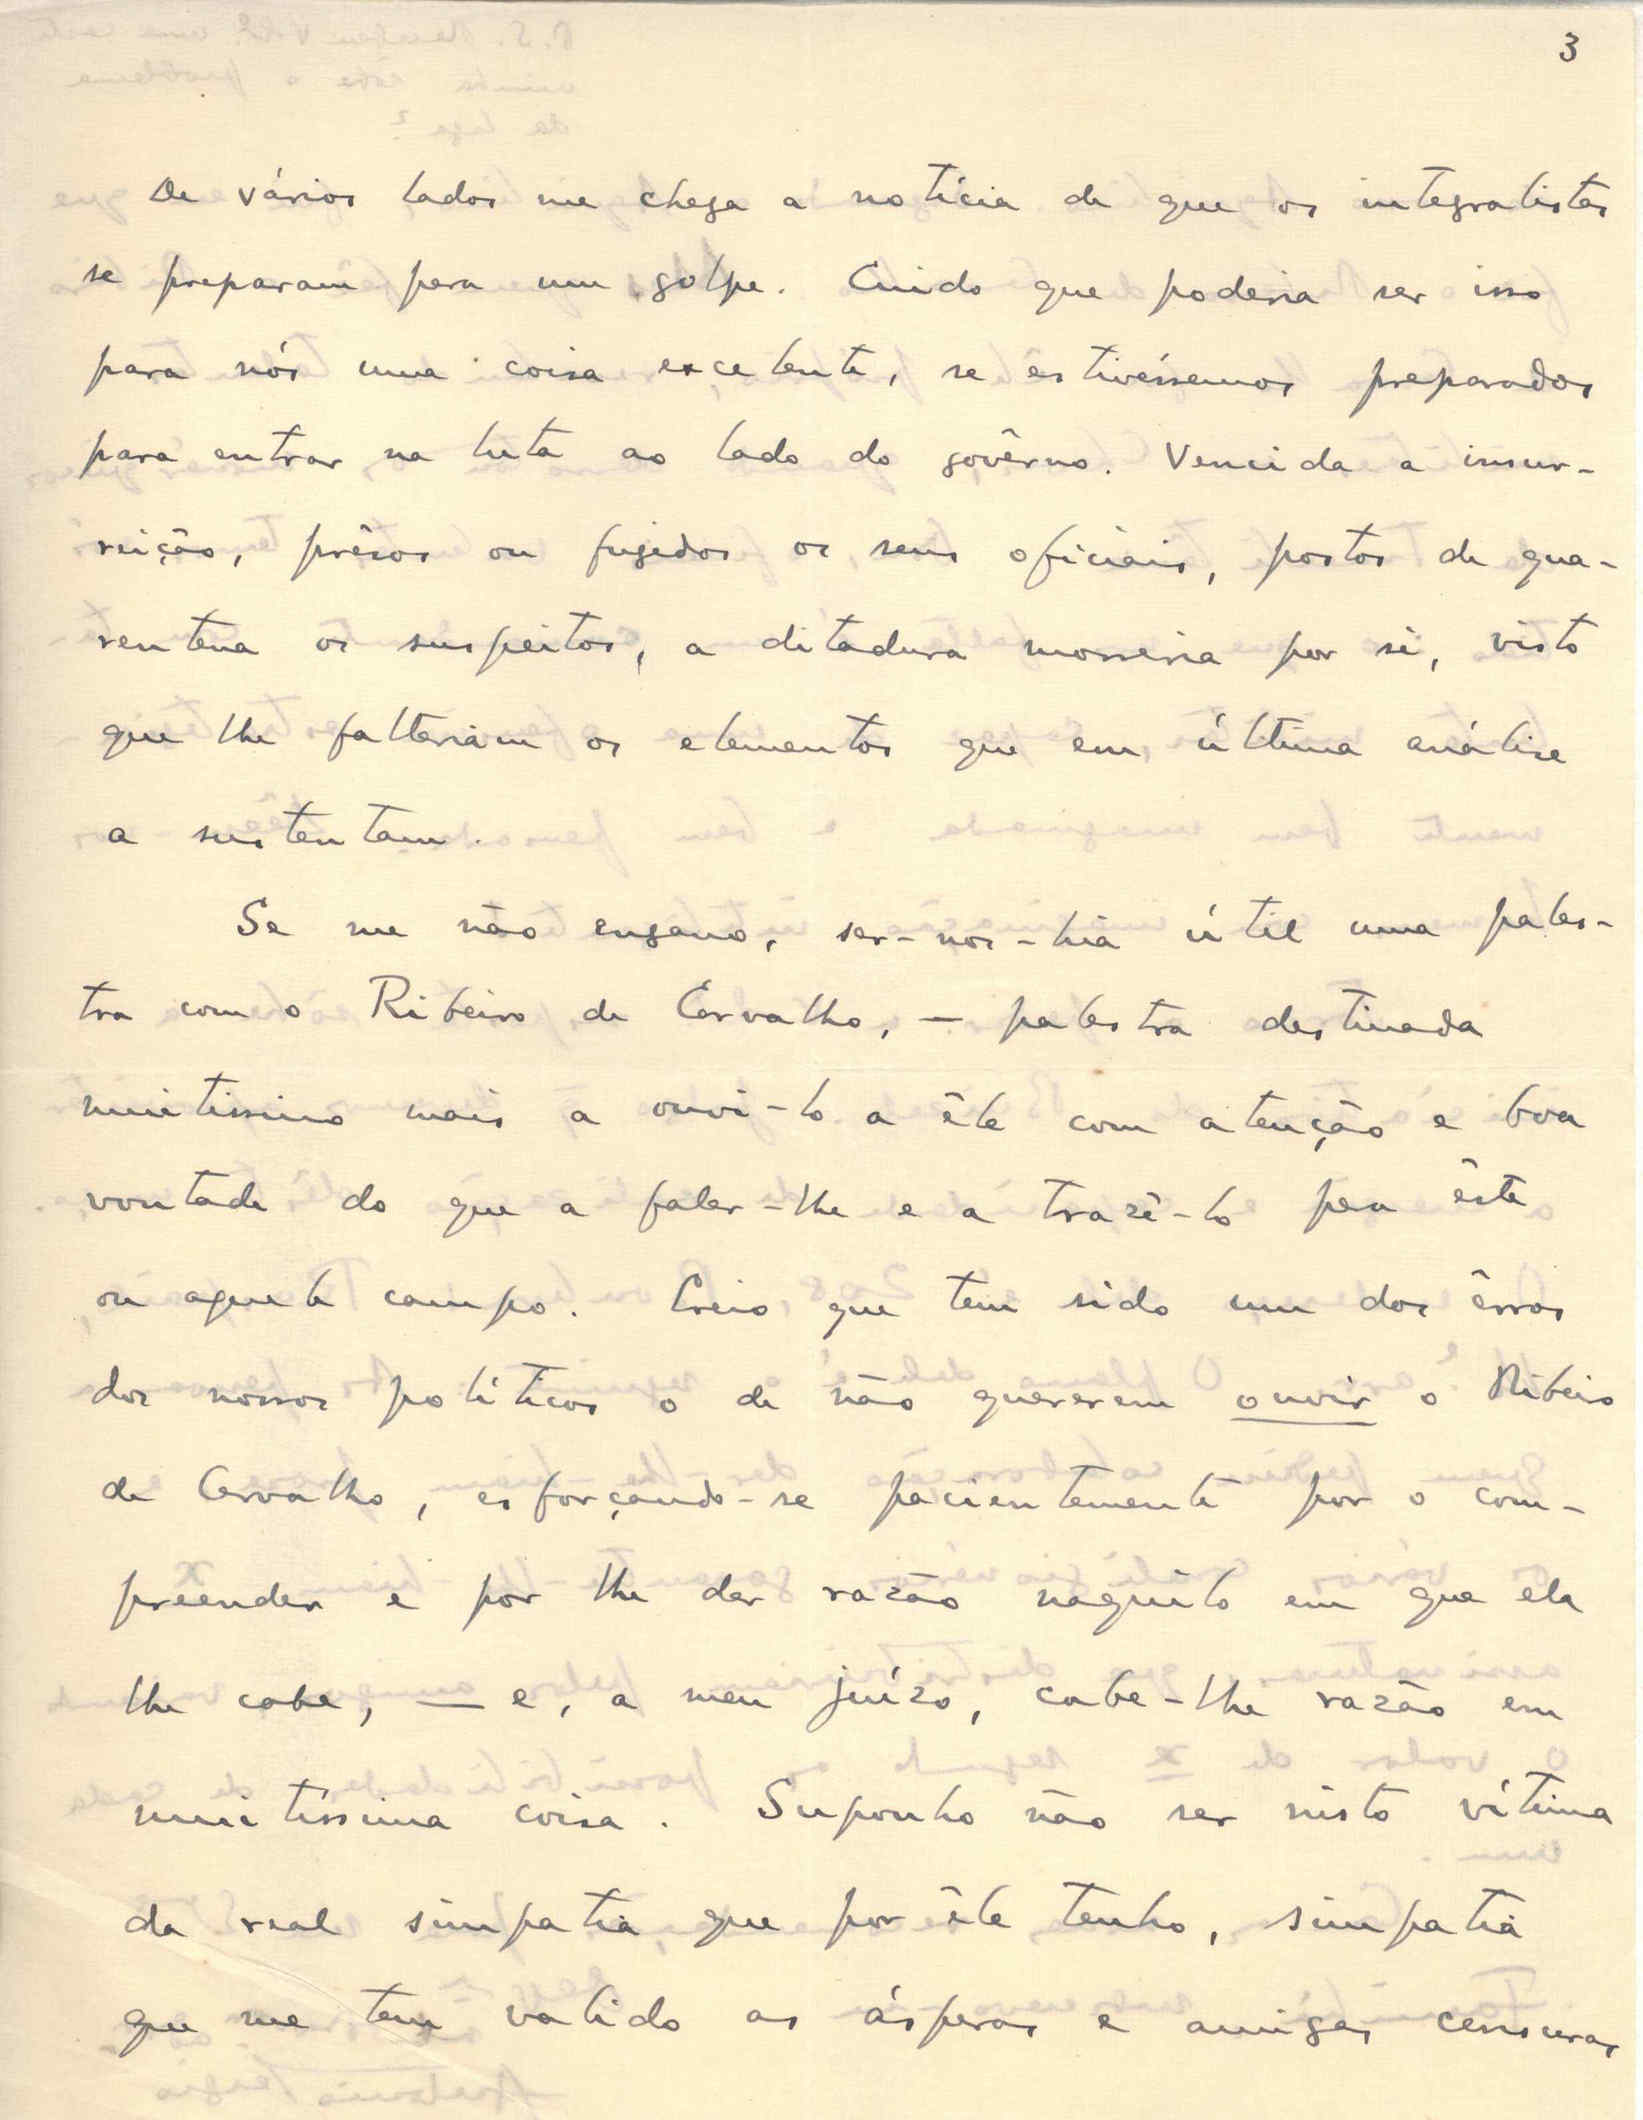 3
De vários lados me chega a notícia de que os integralistas
se preparam para um golpe. Cuido que poderia ser isso
para nós uma coisa excelente, se estivéssemos preparados
para entrar na luta ao lado do govêrno. Vencida a insur-
reição, prêsos ou fugidos os seus oficiais, postos de qua-
rentena os suspeitos, a ditadura morreria por si, visto
que lhe faltariam os elementos que em última análise
a sustentam.
Se me não engano, ser-nos-hia útil uma pales-
tra com o Ribeiro de Carvalho, — palestra destinada
muitíssimo mais a ouvi-lo a êle com atenção e boa
vontade do que a falar-lhe e a trazê-lo para êste
ou aquele campo. Creio que tem sido um dos êrros
dos nossos políticos o de não quererem ouvir o Ribeiro
de Carvalho, esforçando-se pacientemente por o com-
preender e por lhe dar razão naquilo em que ela
lhe cabe, — e, a meu juízo, cabe-lhe razão em
muitíssima coisa. Suponho não ser nisto vítima
da real simpatia que por êle tenho, simpatia
que me tem valido as ásperas e amigas censuras